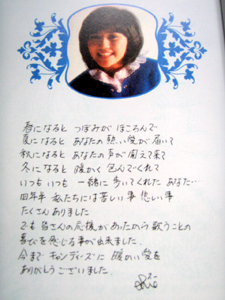 春になると つぼみがほころんで
夏になると あなたの熱い愛が届いて
秋になると あなたの声が聞えて来て
冬になると 暖かく包んでくれて
いつもいつも 一緒に歩いてくれた あなた…
四年半 私たちには苦しい事 悲しい事
たくさんありました
でも 皆さんの応援があったから歌うことの
喜びを感じる事が出来ました。
今まで キャンディーズに 暖かい愛を
ありがとうございました。